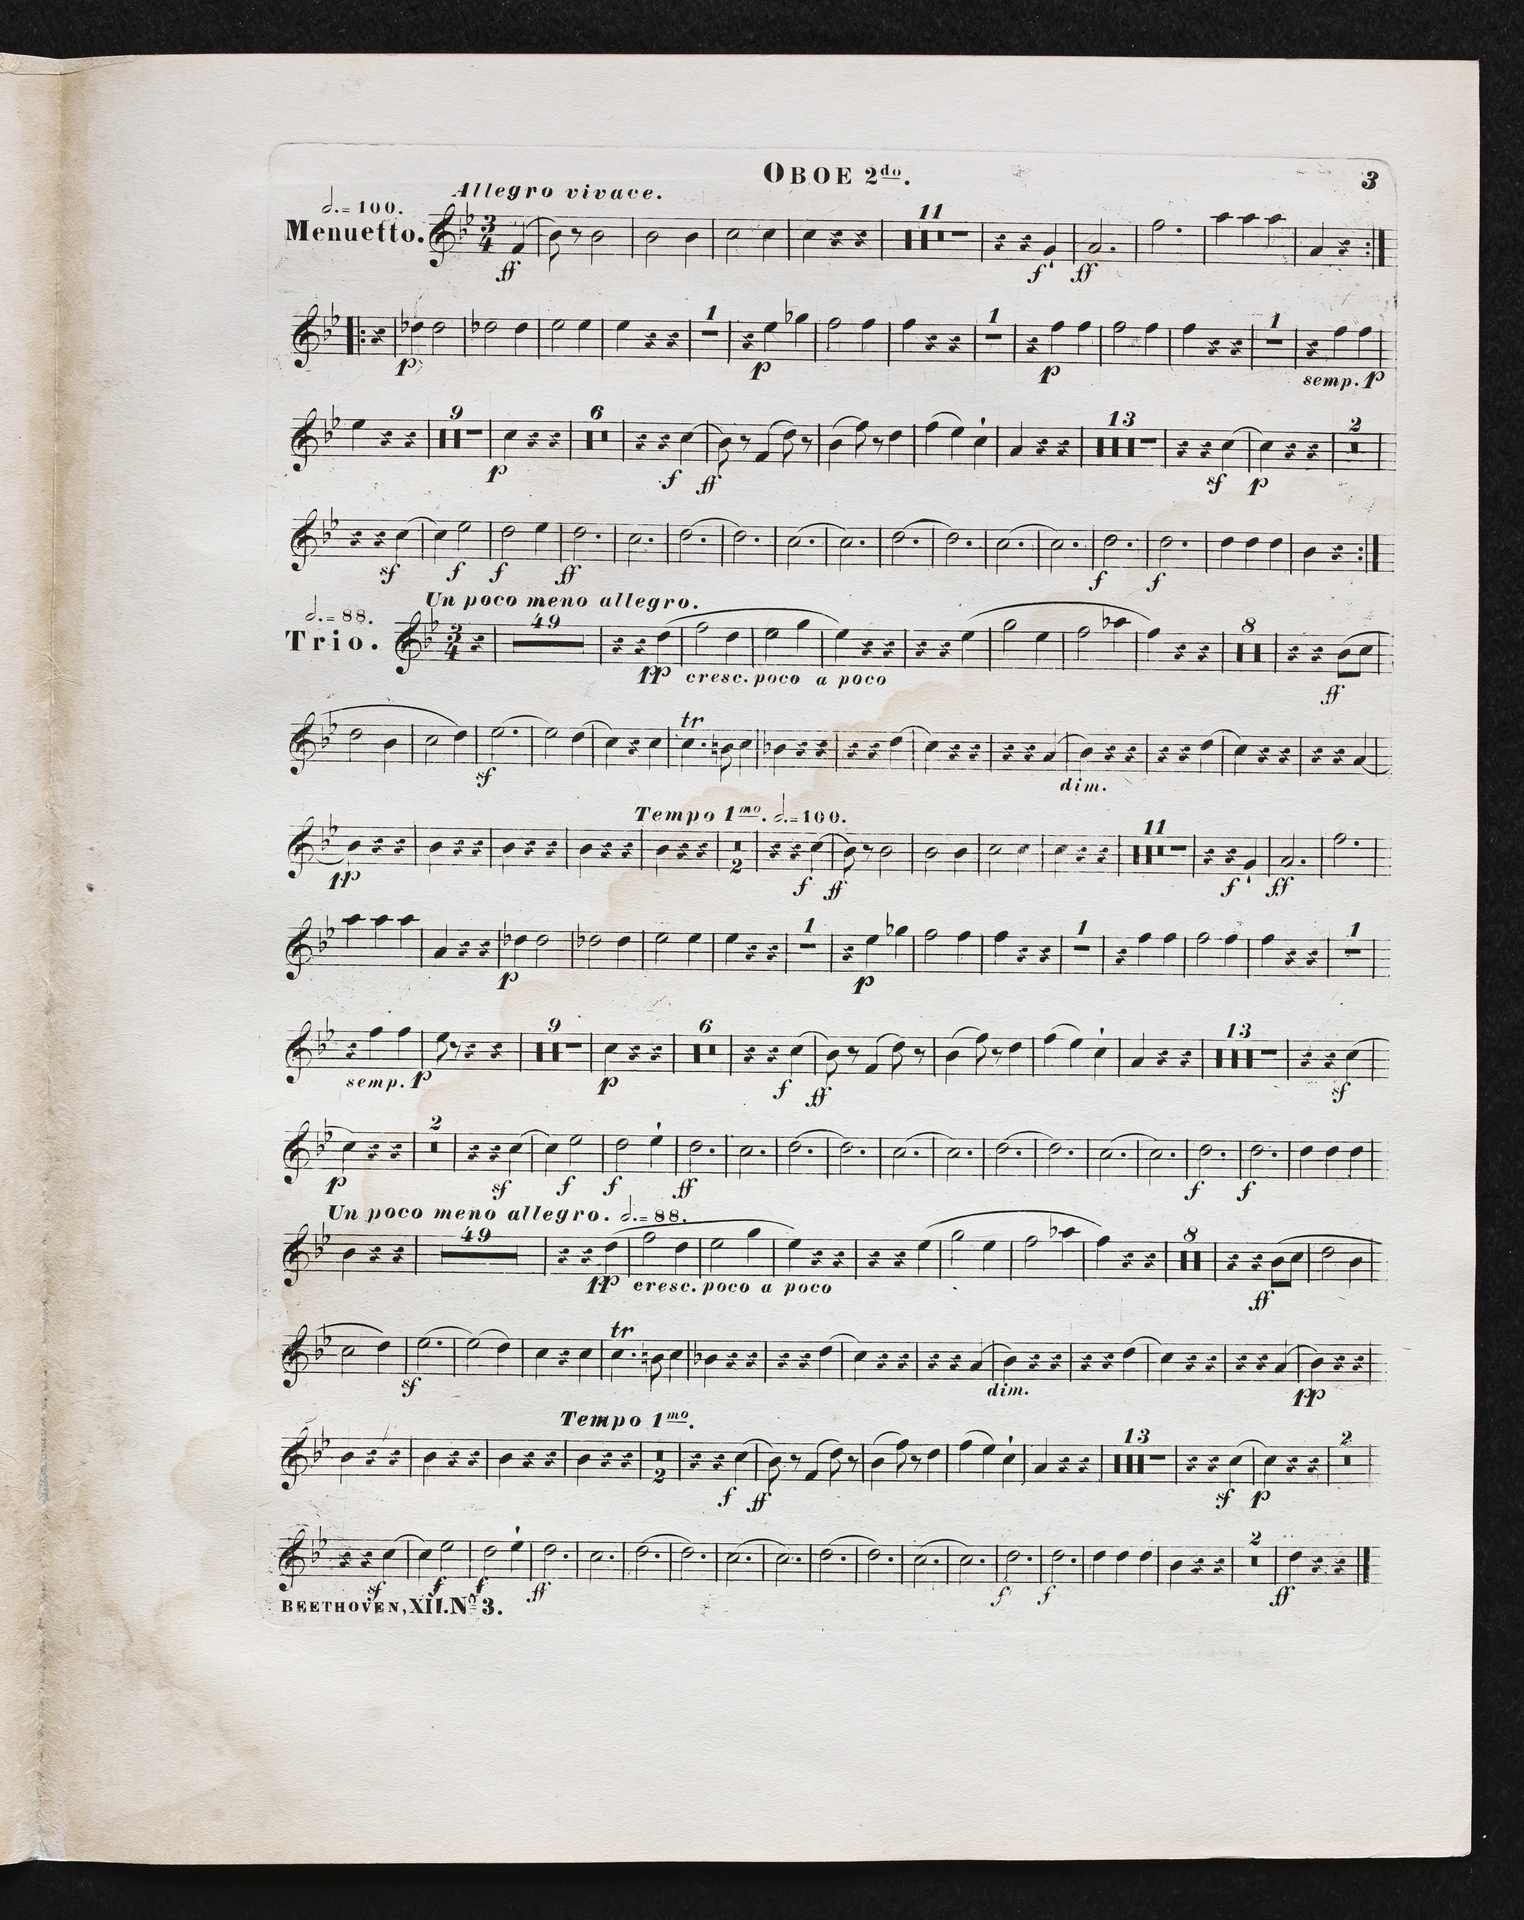 OBOE 2do.
3
Allegro vivace.
𝅗𝅥. = 100.
Menuetto.
11
ff f ff
1 1 1
p p p semp. p
9 6 13 2
p f ff sf p
sf f f ff f f
Un poco meno allegro.
𝅗𝅥. = 88.
Trio.
49 8
pp cresc. poco a poco ff
tr
sf dim.
Tempo 1mo. 𝅗𝅥. = 100.
11
2
pp f ff f ff
1 1 1
p p
9 6 13
semp. p p f ff sf
2
p sf f f ff f f
Un poco meno allegro. 𝅗𝅥. = 88.
49 8
pp cresc. poco a poco ff
tr
sf dim. pp
Tempo 1mo.
13 2
2
f ff sf p
2
sf f f ff f f ff
BEETHOVEN, XII. No 3.